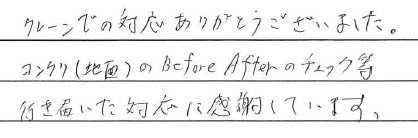 クレーンでの対応ありがとうございました。
コンクリ(地面)のBefore Afterのチェック等
行き届いた対応に感謝しています。